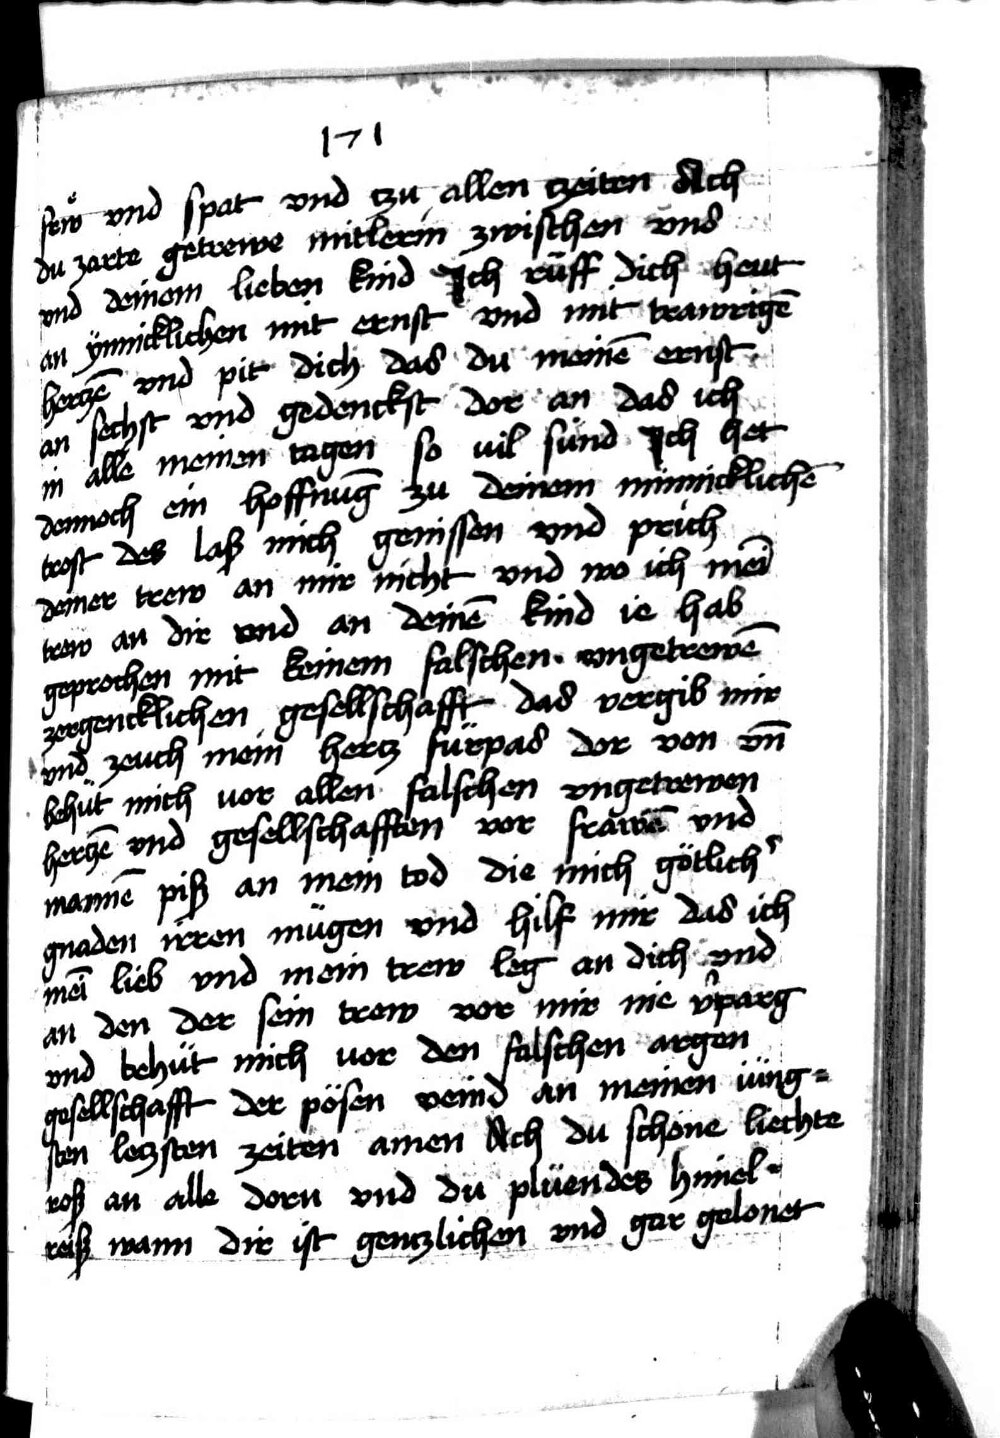 171
frwͦ vnd spat vnd tzu allen tzeiten Ach
du zarte getrewe mitlerin zwischen vns
vnd deinem lieben kind Ich rüff dich heut
an ÿnnicklichen mit ernst vnd mit trawrigē
hertzē vnd pit dich das du meinē ernst
an sechst vnd gedenckst dor an das ich
in alle meinen tagen so uil sünd Ich het
dennoch ein hoffnūg zu deinem minnicklichē
trost des laß mich genissen vnd prich
deiner trew an mir nicht vnd wo ich mei̅
trew an dir vnd an deinē kind ie hab
geprochen mit keinem falschen vngetrewē
zergencklichen gesellschafft das vergib mir
vnd zeuch mein hertz fürpas dor von vn̅
behüt mich uor allen falschen vngetrewen
hertzē vnd gesellschafften vor frawē vnd
mannē piß an mein tod die mich götlichʼ
gnaden irren mügen vnd hilf mir das ich
mei̅ lieb vnd mein trew leg an dich vnd
an den der sein trew vor mir nie vʼparg
vnd behüt mich uor den falschen argen
gesellschafft der pösen veind an meinen iüng=
sten letzsten zeiten amen Ach du schöne liechte
roß an alle dorn vnd du plüendes himel=
reiß wann dir ist gentzlichen vnd gar gelonet